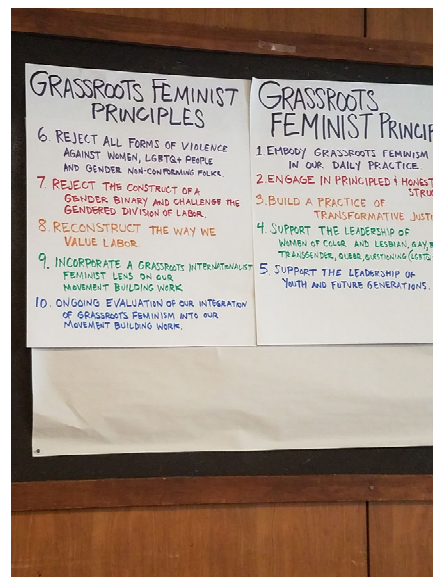 GRASSROOTS FEMINIST
PRINCIPLES
6. REJECT ALL FORMS OF VIOLENCE
AGAINST WOMEN, LGBTQ+ PEOPLE
AND GENDER NON-CONFORMING FOLKX.
7. REJECT THE CONSTRUCT OF A
GENDER BINARY AND CHALLENGE THE
GENDERED DIVISION OF LABOR.
8. RECONSTRUCT THE WAY WE
VALUE LABOR.
9. INCORPORATE A GRASSROOTS INTERNATIONALIST
FEMINIST LENS ON OUR
MOVEMENT BUILDING WORK
10. ONGOING EVALUATION OF OUR INTEGRATION
OF GRASSROOTS FEMINISM INTO OUR
MOVEMENT BUILDING WORK.
GRASSROOTS
FEMINIST PRINCIP
1. EMBODY GRASSROOTS FEMINISM
IN OUR DAILY PRACTICE.
2. ENGAGE IN PRINCIPLED & HONEST
STRU
3. BUILD A PRACTICE OF
TRANSFORMATIVE JUSTI
4. SUPPORT THE LEADERSHIP OF
WOMEN OF COLOR AND LESBIAN, GAY, B
TRANSGENDER, QUEER, QUESTIONING (LGBTQ
5. SUPPORT THE LEADERSHIP OF
YOUTH AND FUTURE GENERATIONS.